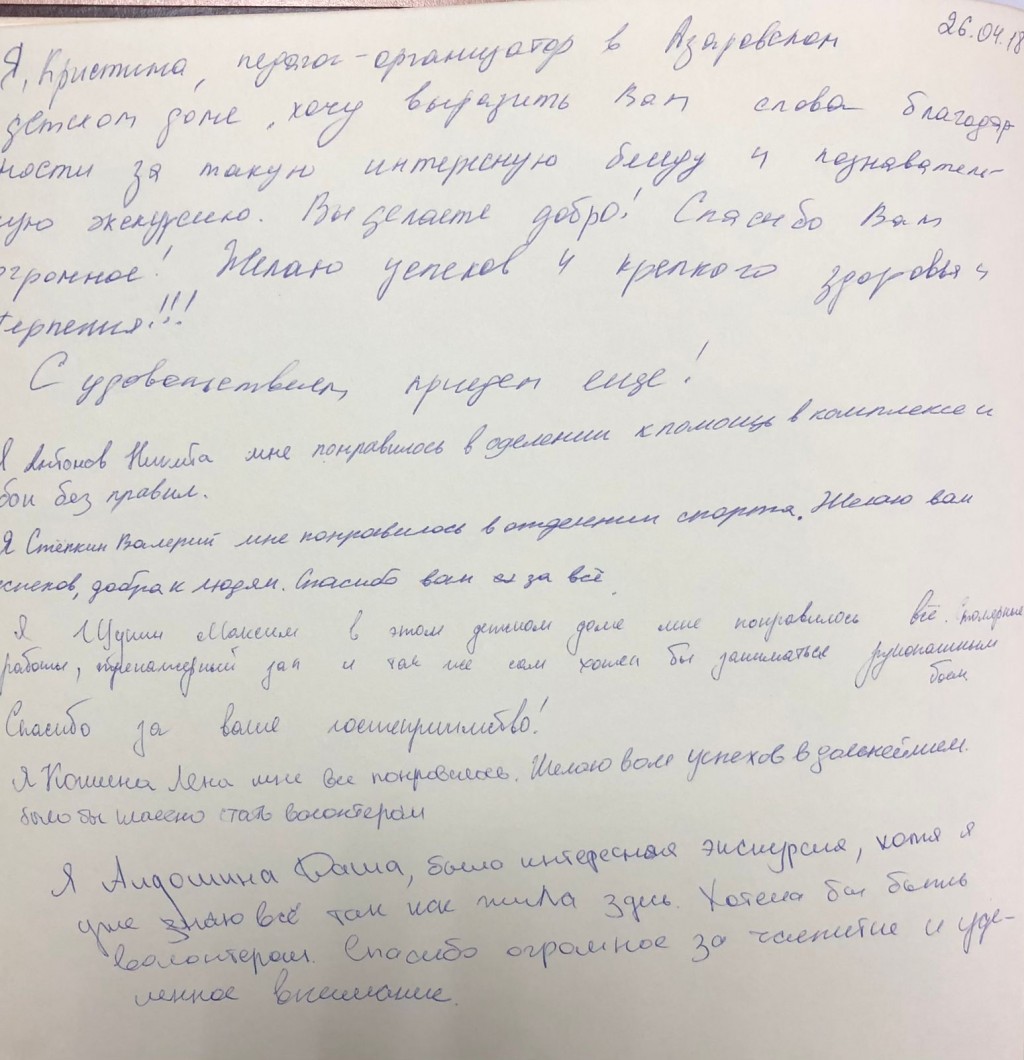 26.04.18
Я, Кристина, педагог-организатор в Азаровском
детском доме, хочу выразить Вам слова благодар
ности за такую интересную беседу и познаватель-
ную экскурсию. Вы делаете добро! Спасибо Вам
огромное! Желаю успехов и крепкого здоровья и
терпения!!!
С удовольствием приедем еще!
Я Антонов Никита мне понравилось в оделении к помощь в комплексе и
бои без правил.
Я Стёпкин Валерий мне понравилось в отделении спорта. Желаю вам
успехов, добра к людям. Спасибо вам за всё
Я Щукин Максим в этом детском доме мне понравилось всё. Столярные
работы, тренажерный зал и так же сам хотел бы заниматься рукопашным
боем
Спасибо за ваше гостеприимство!
Я Кошина Лена мне все понравилось. Желаю вам успехов в дальнейшем.
было бы классно стать волонтером
Я Алдошина Даша, было интересная экскурсия, хотя я
уже знаю всё так как жила здесь. Хотела бы быть
волонтером. Спасибо огромное за чаепитие и уде-
ленное внимание.